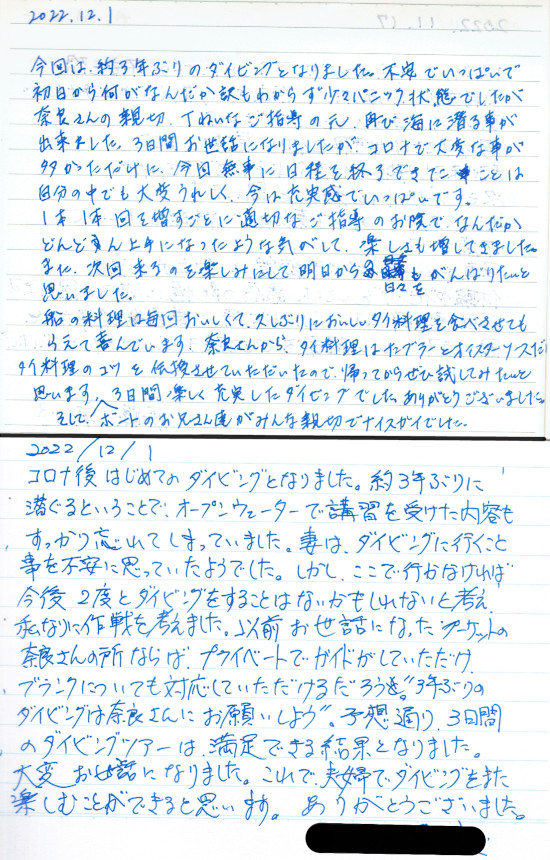 2022.12.1
今回は、約3年ぶりのダイビングとなりました。不安でいっぱいで
初日から何がなんだか訳もわからず少々パニック状態でしたが
奈良さんの親切、ていねいなご指導の元、再び海に潜る事が
出来ました。3日間お世話になりましたが、コロナで大変な事が
多かっただけに、今回無事に日程を終了できたことは
自分の中でも大変うれしく、今は充実感でいっぱいです。
1本1本回を増すごとに適切なご指導のお陰で、なんだか
どんどん上手になったような気がして、楽しさも増してきました。
また、次回来るのを楽しみにして明日から日々をがんばりたいと
思いました。
船の料理は毎回おいしくて、久しぶりにおいしいタイ料理を食べさせても
らえて喜んでいます。奈良さんから、タイ料理はナンプラーとオイスターソースだ!
タイ料理のコツを伝授させていただいたので、帰ってからぜひ試してみたいと
思います。3日間楽しく充実したダイビングでした。ありがとうございました。
そして、ボートのお兄さん達がみんな親切でナイスガイでした。
2022/12/1
コロナ後はじめてのダイビングとなりました。約3年ぶりに
潜ぐるということで、オープンウォーターで講習を受けた内容も
すっかり忘れてしまっていました。妻は、ダイビングに行くこと
事を不安に思っていたようでした。しかし、ここで行かなければ
今後2度とダイビングをすることはないかもしれないと考え、
私なりに作戦を考えました。以前お世話になったプーケットの
奈良さんの所ならば、プライベートでガイドがしていただけ、
ブランクについても対応していただけるだろうと。"3年ぶりの
ダイビングは奈良さんにお願いしよう"。予想通り、3日間
のダイビングツアーは、満足できる結果となりました。
大変お世話になりました。これで、夫婦でダイビングをまた
楽しむことができると思います。ありがとうございました。